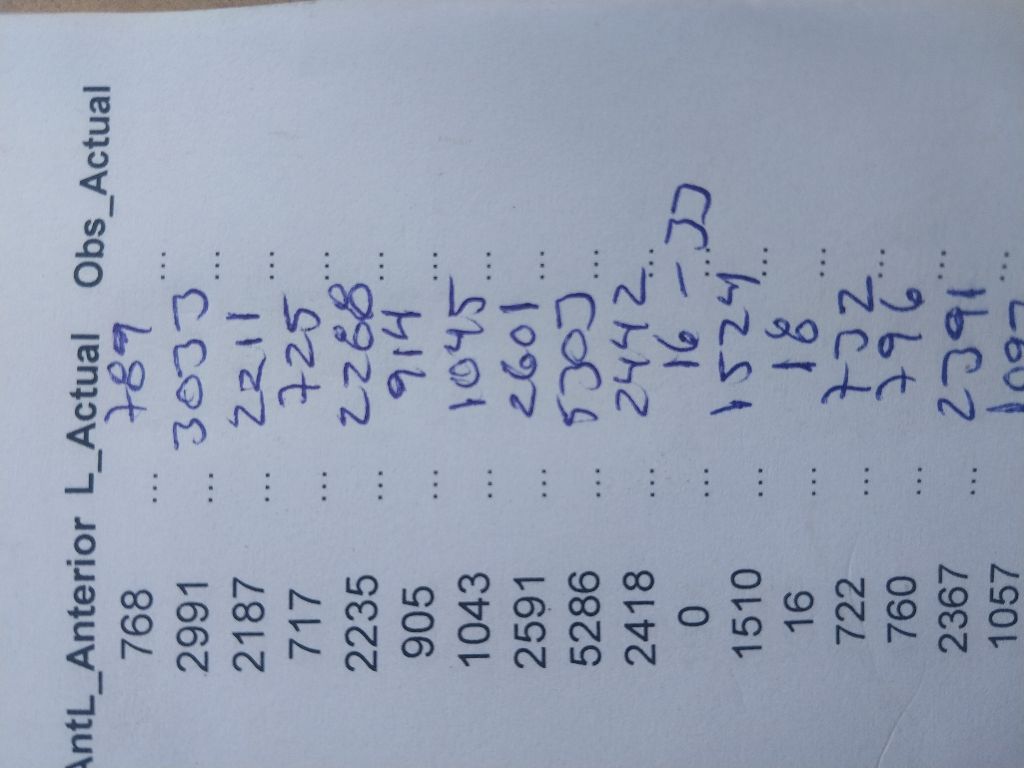 AntL_Anterior L_Actual Obs_Actual
768 ... 789 ...
2991 ... 3033 ...
2187 ... 2211 ...
717 ... 725 ...
2235 ... 2288 ...
905 ... 914 ...
1043 ... 1045 ...
2591 ... 2601 ...
5286 ... 5303 ...
2418 ... 2442 ...
0 ... 16 - 33 ...
1510 ... 1524 ...
16 ... 18 ...
722 ... 732 ...
760 ... 796 ...
2367 ... 2391 ...
1057 1097